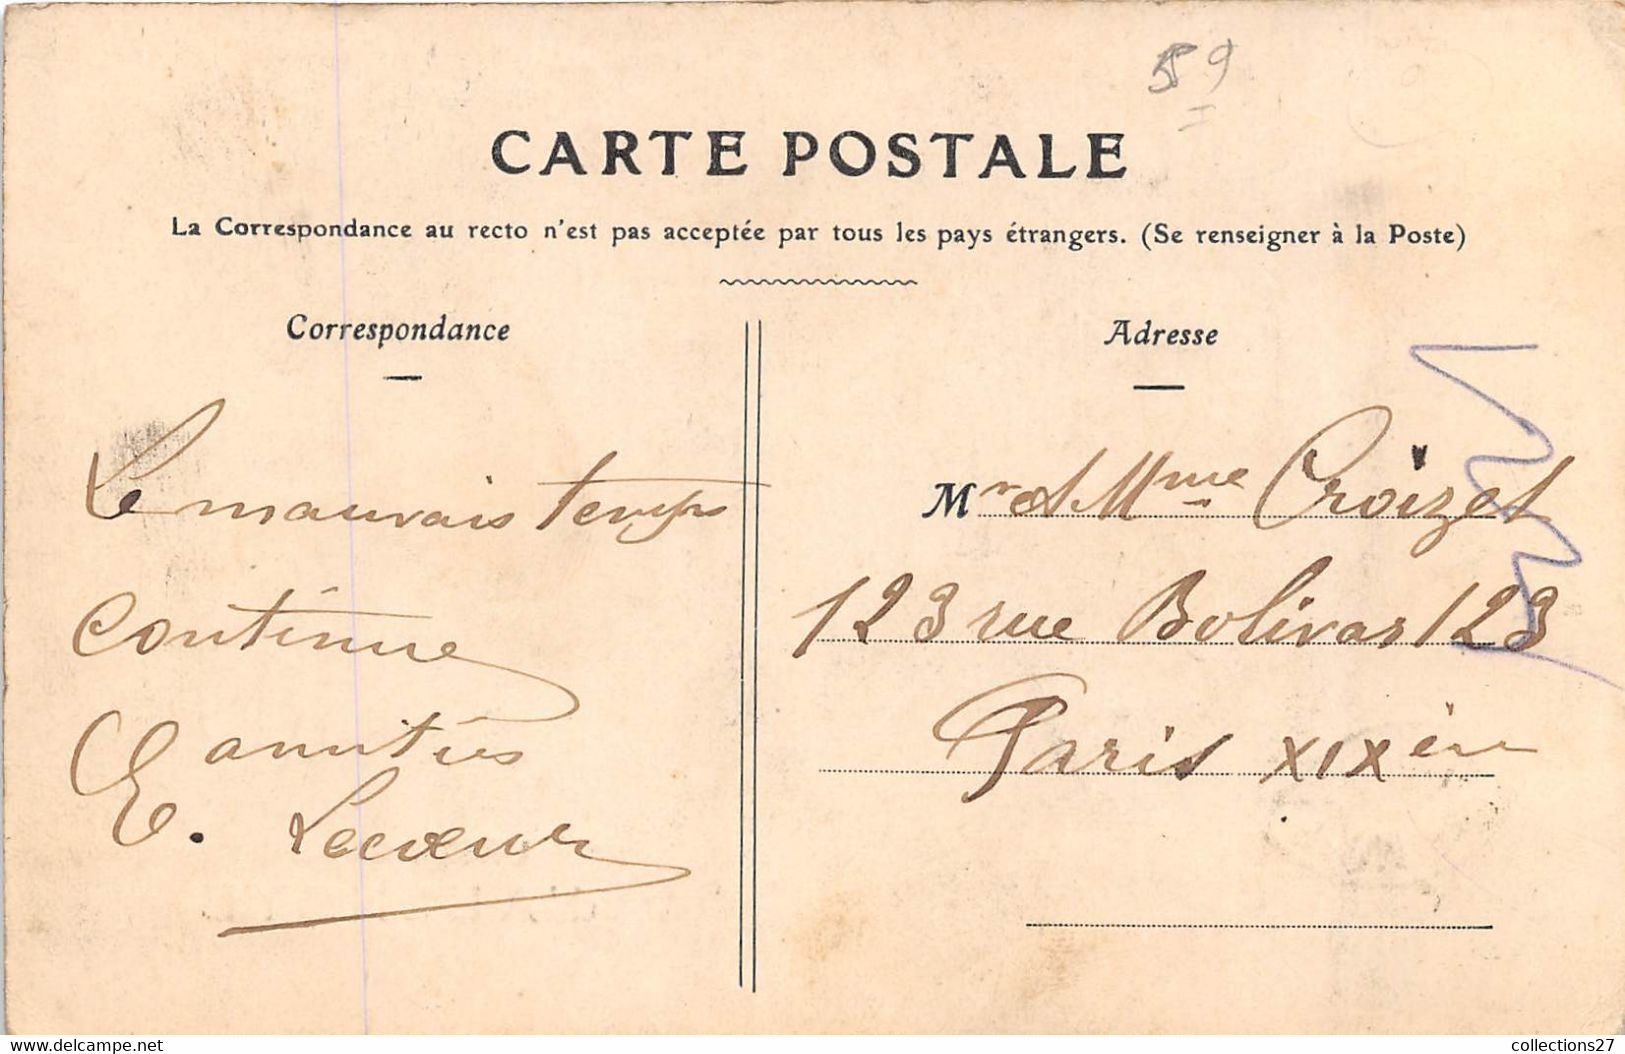 59
CARTE POSTALE
La Correspondance au recto n'est pas acceptée par tous les pays étrangers. (Se renseigner à la Poste)
Correspondance
Le mauvais temps
continue
amitiés
E. Lecoeur
Adresse
Mr et Mme Croizet
123 rue Bolivar 123
Paris XIXème
www.delcampe.net
collections27